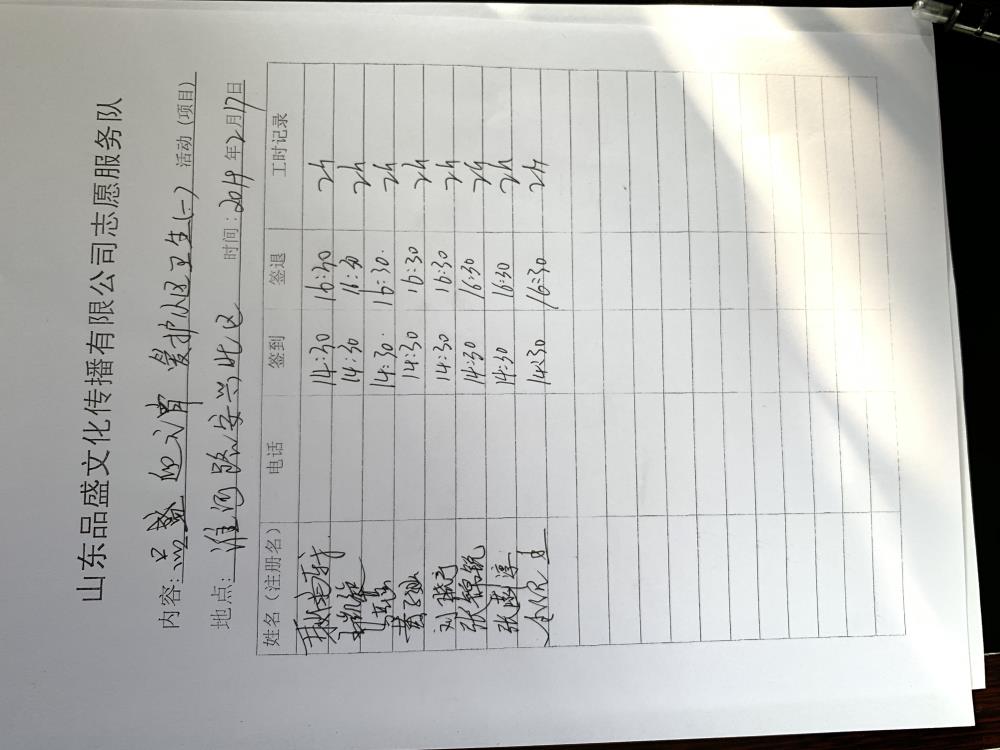 山东品盛文化传播有限公司志愿服务队
内容:品盛 爱护小区卫生(二) 活动(项目)
地点:淮河路安兴北区 时间:2019年2月17日
姓名(注册名) 电话 签到 签退 工时记录
14:30 16:30 2h
14:30 16:30 2h
14:30 16:30. 2h
14:30 16:30 2h
刘 14:30 16:30 2h
张锦锐 14:30 16:30 2h
张 淳 14:30 16:30 2h
14:30 16:30 2h